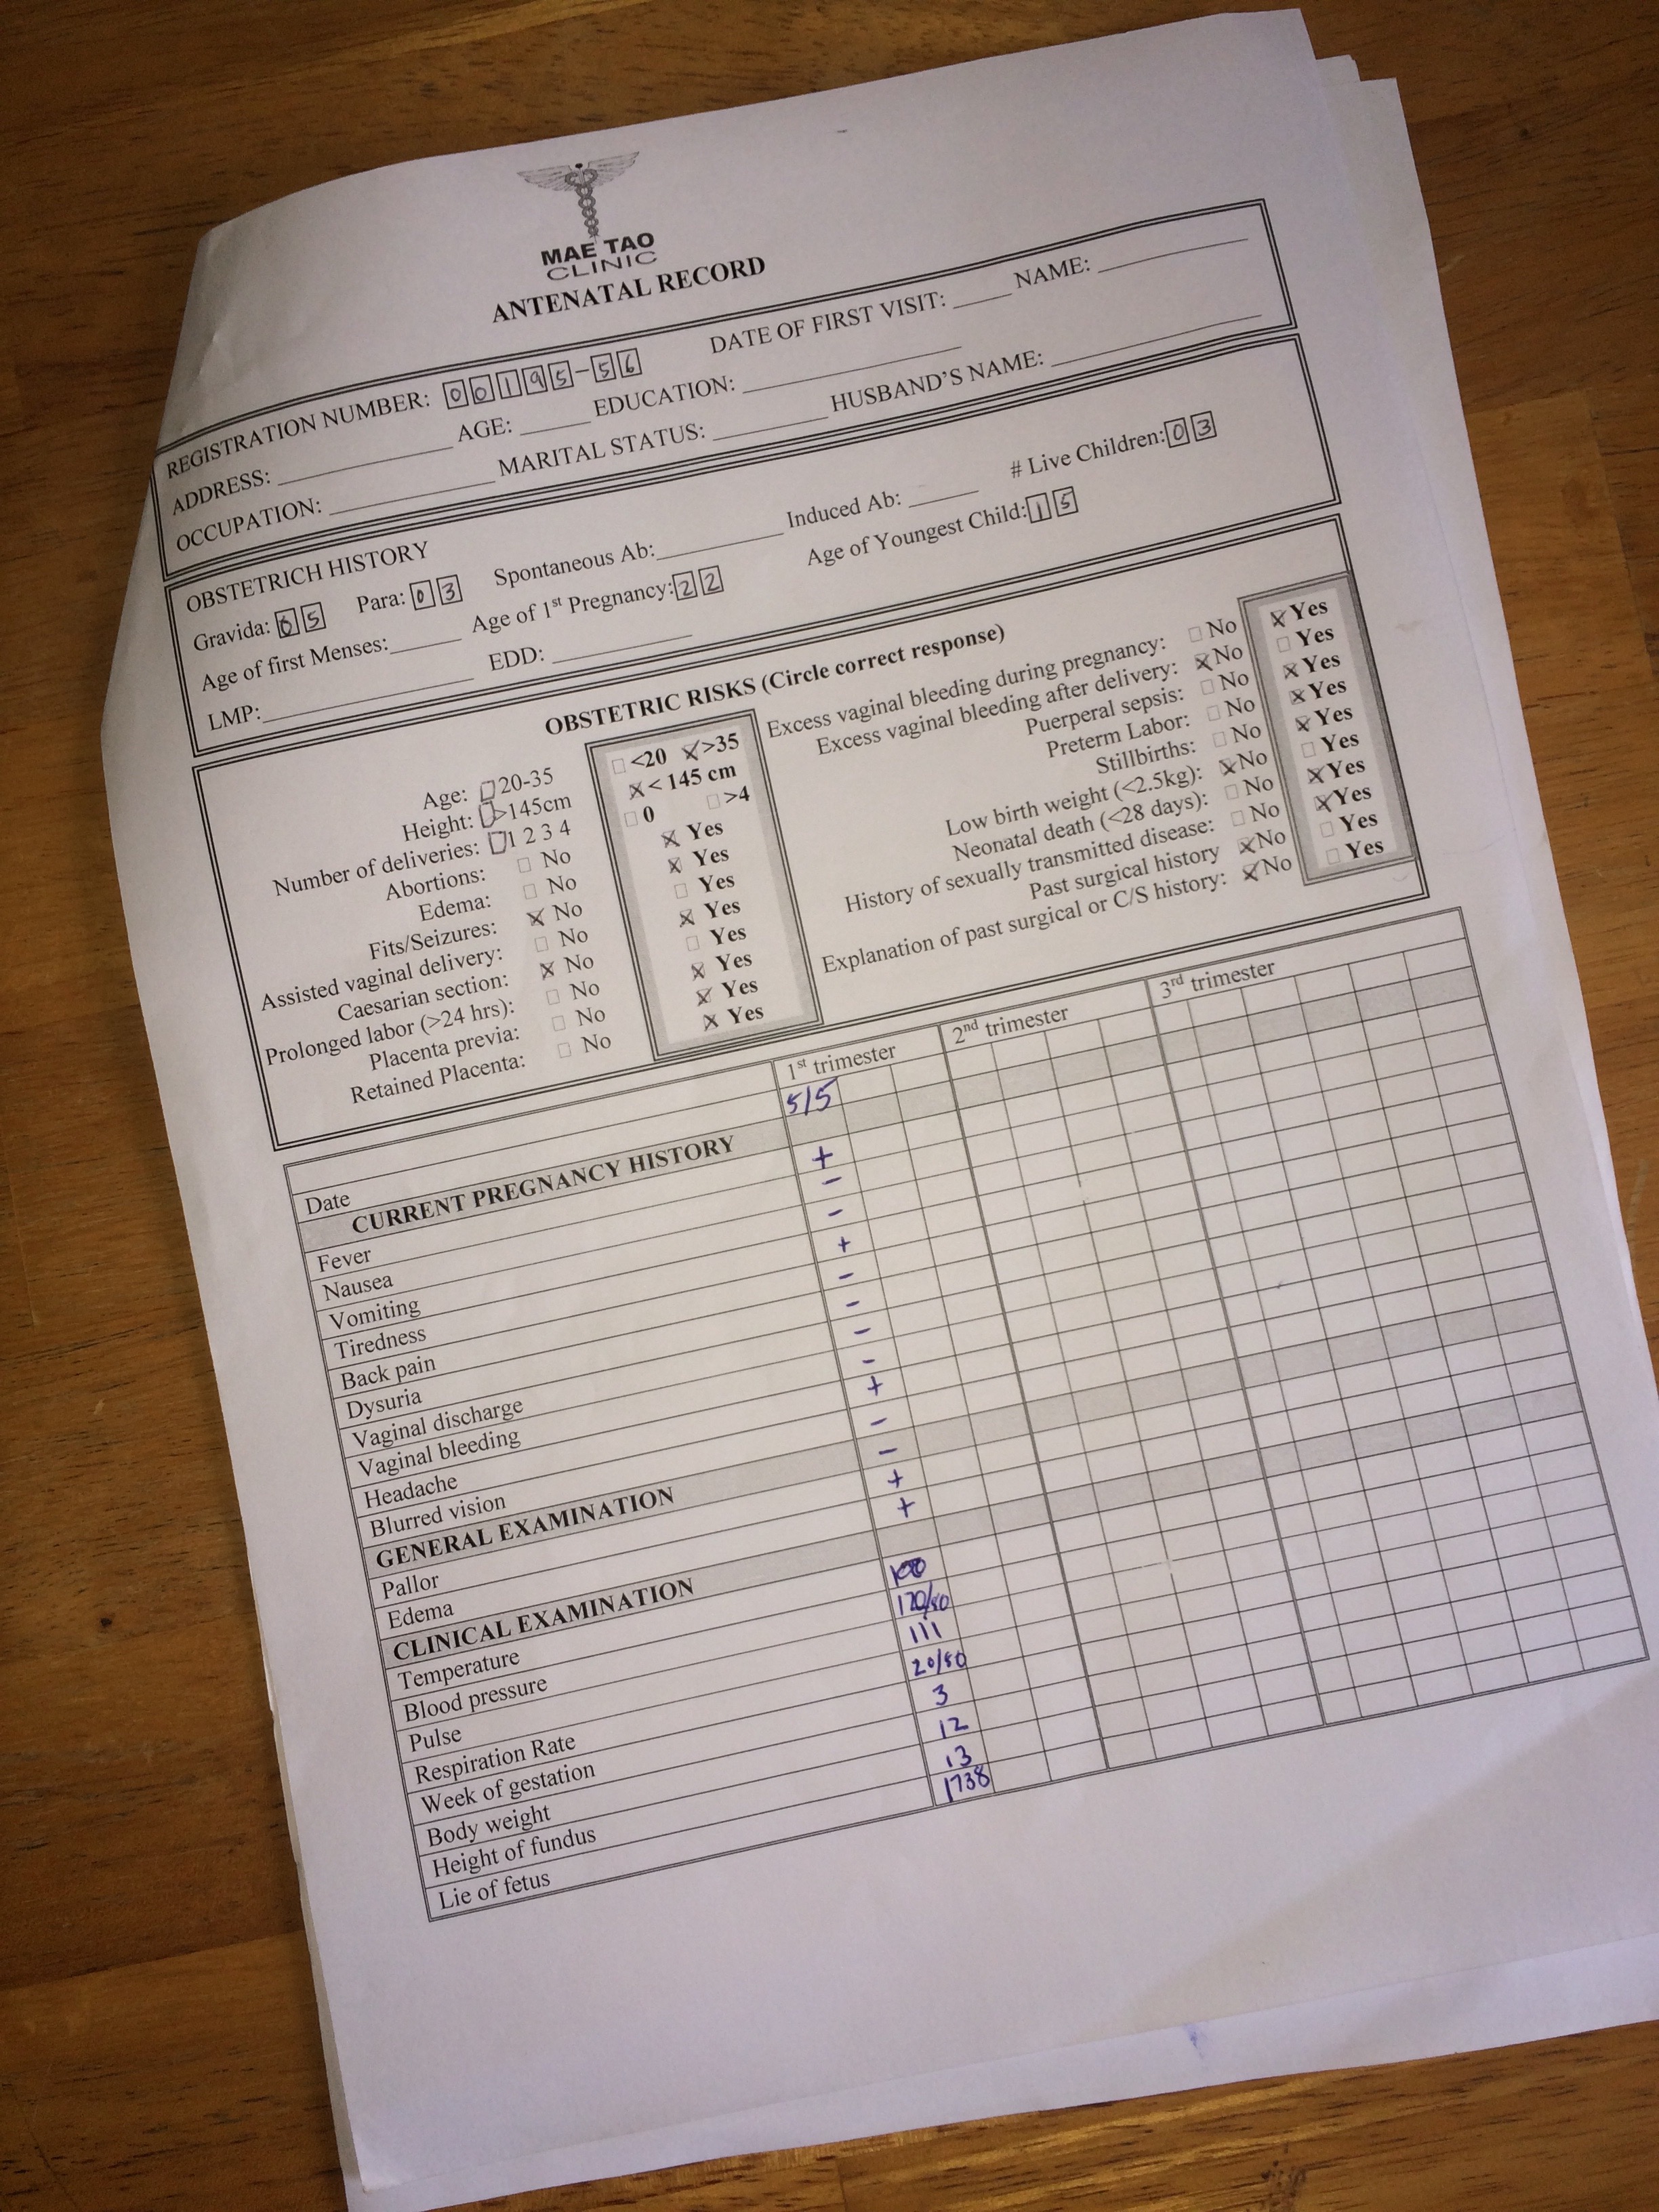 MAE TAO
CLINIC
ANTENATAL RECORD
REGISTRATION NUMBER: 00195-56 DATE OF FIRST VISIT: ____ NAME: ____
ADDRESS: ____ AGE: ____ EDUCATION: ____
OCCUPATION: ____ MARITAL STATUS: ____ HUSBAND'S NAME: ____
OBSTETRICH HISTORY
Gravida: 05 Para: 03 Spontaneous Ab: ____ Induced Ab: ____ # Live Children: 03
Age of first Menses: ____ Age of 1st Pregnancy: 22 Age of Youngest Child: 15
LMP: ____ EDD: ____
OBSTETRIC RISKS (Circle correct response)
Age: ☐ 20-35 ☐ <20 ☒ >35
Height: ☐ >145cm ☒ < 145 cm
Number of deliveries: ☐ 1 2 3 4 ☐ 0 ☐ >4
Abortions: ☐ No ☒ Yes
Edema: ☐ No ☒ Yes
Fits/Seizures: ☒ No ☐ Yes
Assisted vaginal delivery: ☐ No ☒ Yes
Caesarian section: ☒ No ☐ Yes
Prolonged labor (>24 hrs): ☐ No ☒ Yes
Placenta previa: ☐ No ☒ Yes
Retained Placenta: ☐ No ☒ Yes
Excess vaginal bleeding during pregnancy: ☐ No ☒ Yes
Excess vaginal bleeding after delivery: ☒ No ☐ Yes
Puerperal sepsis: ☐ No ☒ Yes
Preterm Labor: ☐ No ☒ Yes
Stillbirths: ☐ No ☒ Yes
Low birth weight (<2.5kg): ☒ No ☐ Yes
Neonatal death (<28 days): ☐ No ☒ Yes
History of sexually transmitted disease: ☐ No ☒ Yes
Past surgical history ☒ No ☐ Yes
Explanation of past surgical or C/S history: ☒ No ☐ Yes
1st trimester 2nd trimester 3rd trimester
Date 5/5
CURRENT PREGNANCY HISTORY
Fever +
Nausea -
Vomiting -
Tiredness +
Back pain -
Dysuria -
Vaginal discharge -
Vaginal bleeding -
Headache +
Blurred vision -
GENERAL EXAMINATION -
Pallor +
Edema +
CLINICAL EXAMINATION
Temperature 100
Blood pressure 120/80
Pulse 111
Respiration Rate 20/80
Week of gestation 3
Body weight 12
Height of fundus 13
Lie of fetus 1738